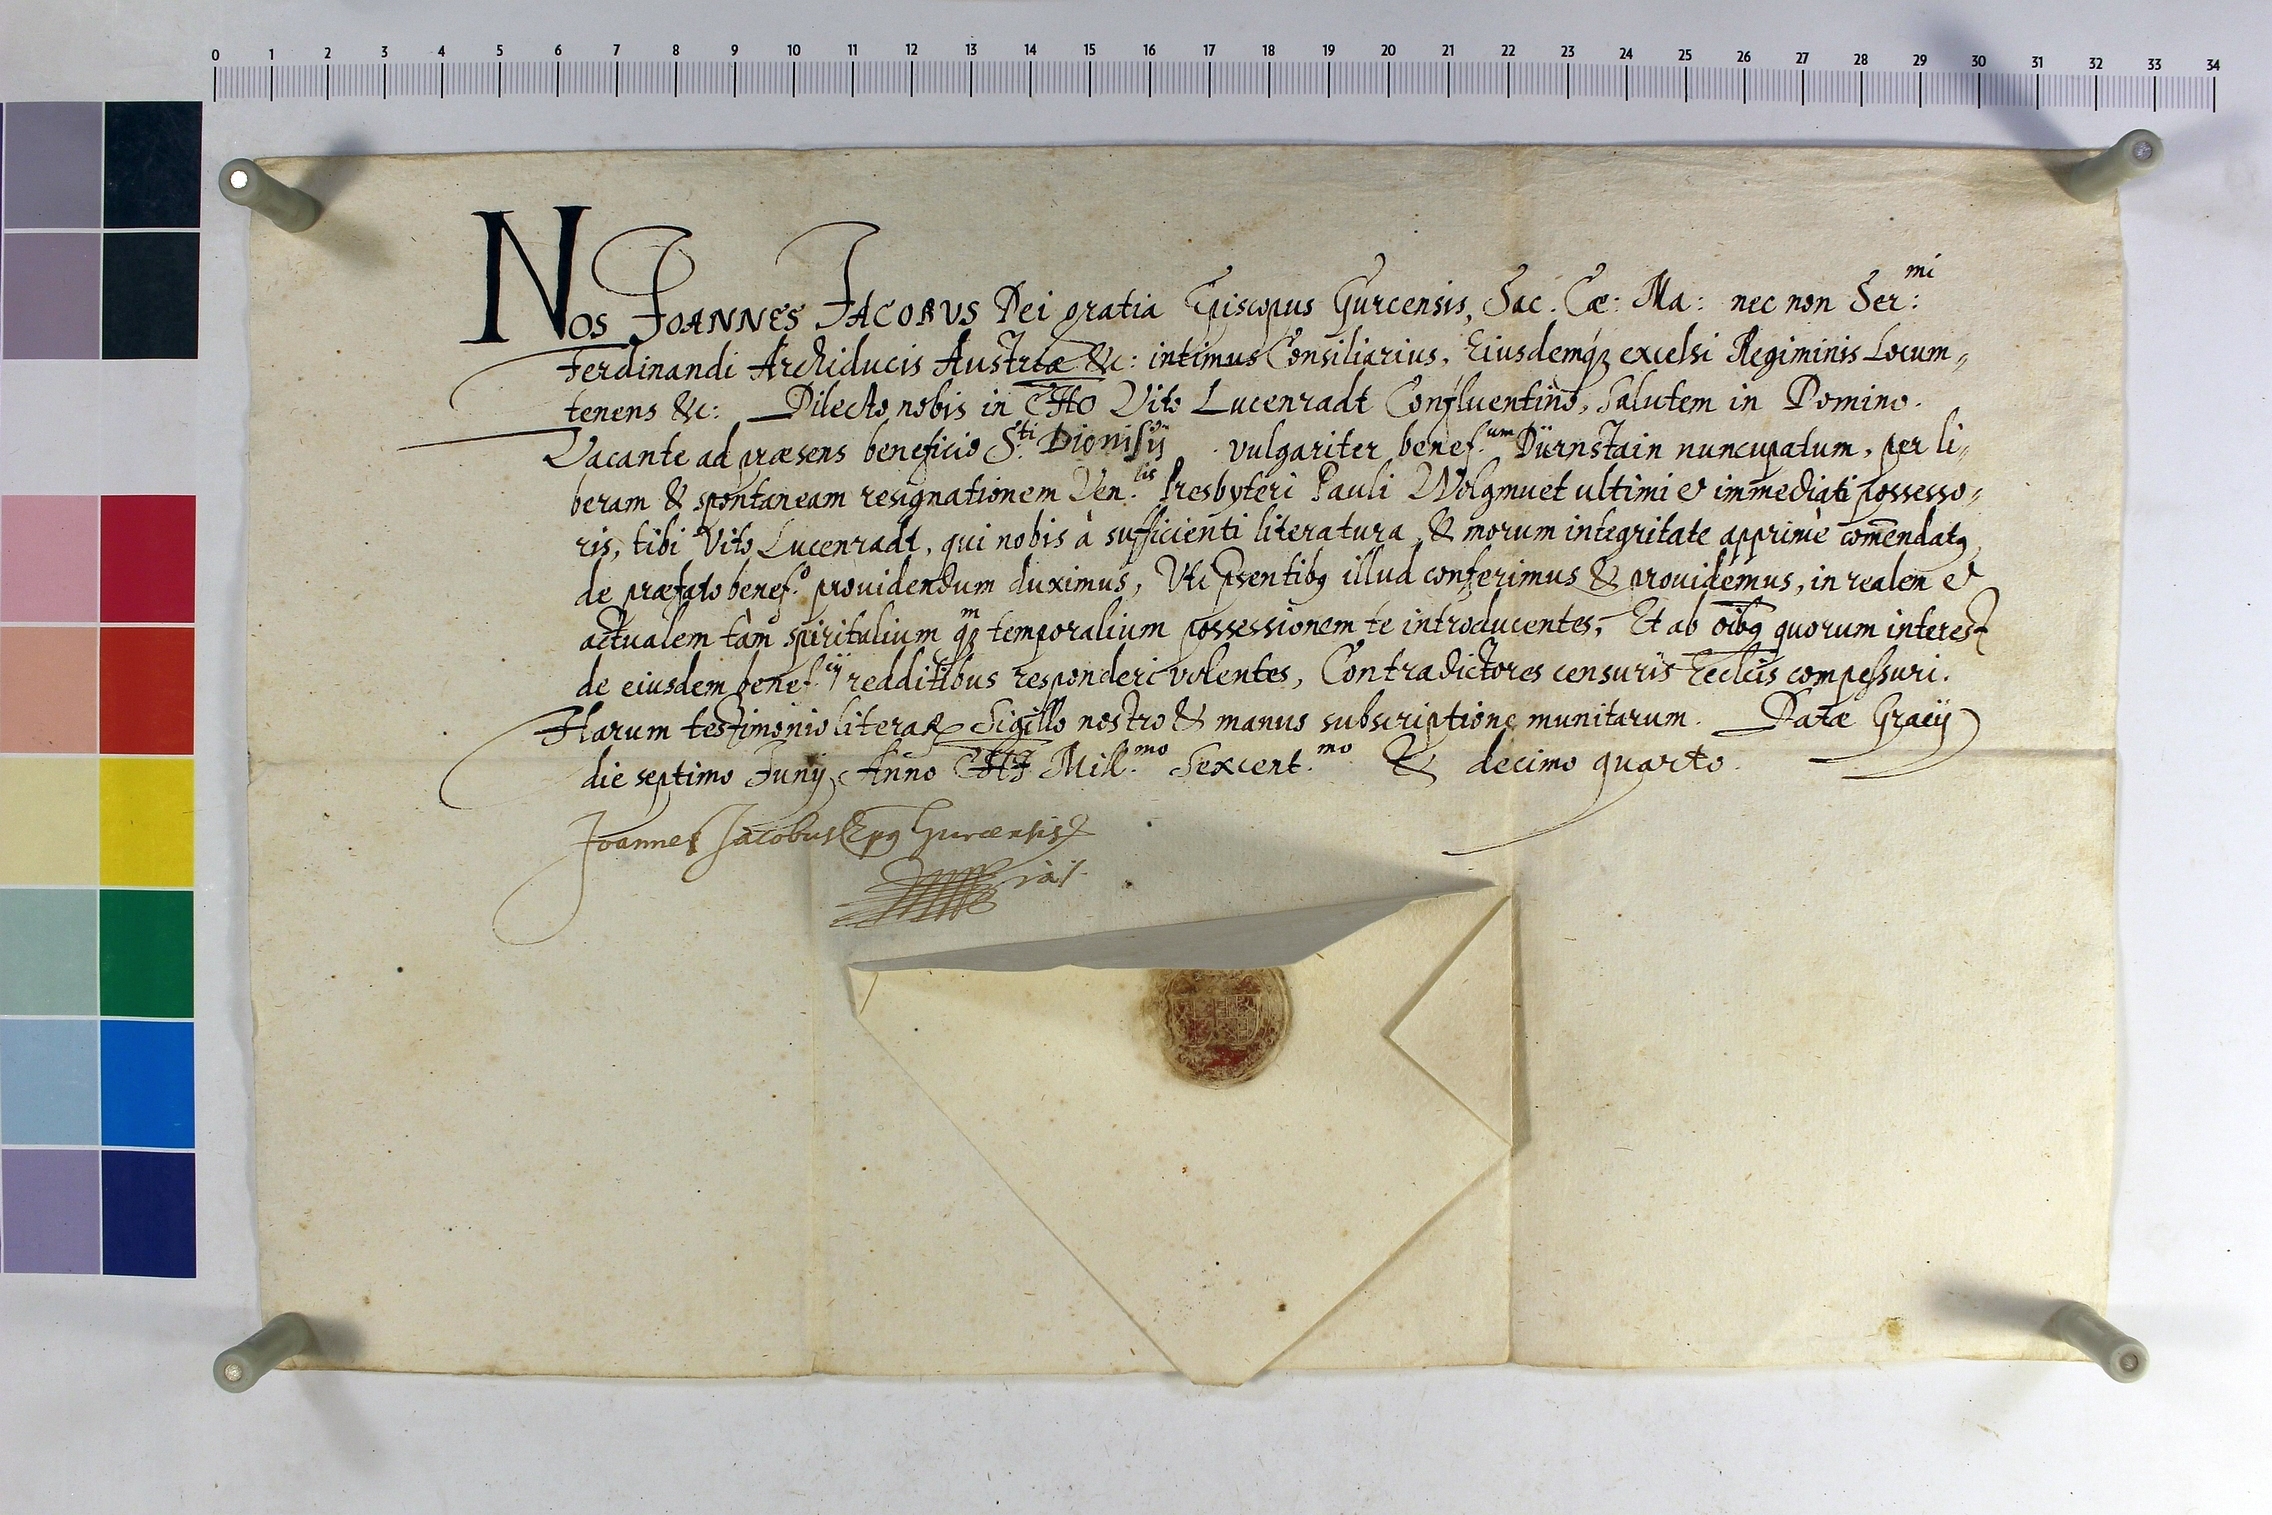 0 1 2 3 4 5 6 7 8 9 10 11 12 13 14 15 16 17 18 19 20 21 22 23 24 25 26 27 28 29 30 31 32 33 34
Nos Joannes Jacobus Dei gratia Episcopus Gurcensis, Sac. Cæ: Ma: nec non Ser:mi
Ferdinandi Archiducis Austriæ &c: intimus Consiliarius, Eiusdemqꝫ excelsi Regiminis Locum„
tenens &c: Dilecto nobis in CHto Vito Lucenradt Confluentino, Salutem in Domino.
Vacante ad præsens beneficio S.ti Dionisÿ vulgariter benef.um Dürnstain nuncupatum, per li„
beram & spontaneam resignationem Ven.lis Presbyteri Pauli Wolgmuet ultimi et immediati possesso„
ris, tibi Vito Lucenradt, qui nobis à sufficienti literatura, & morum integritate apprimè com̄endatꝰ
de præfato benef.o prouidendum duximus, Uti psentibꝰ illud conferimus & prouidemus, in realem et
actualem tàm spiritalium qꝫm temporalium possessionem te introducentes, Et ab oībꝰ quorum interest
de eiusdem benef.cÿ redditibus responderi volentes, Contradictores censuris Ecclcis compessuri.
Harum testimonio literaꝝ Sigillo nostro & manus subscriptione munitarum. Datæ Græcÿ
die septimo Junÿ Anno CHI Mill.mo Sexcent.mo & decimo quarto.
Joannes Jacobus Epꝰ Gurcensis